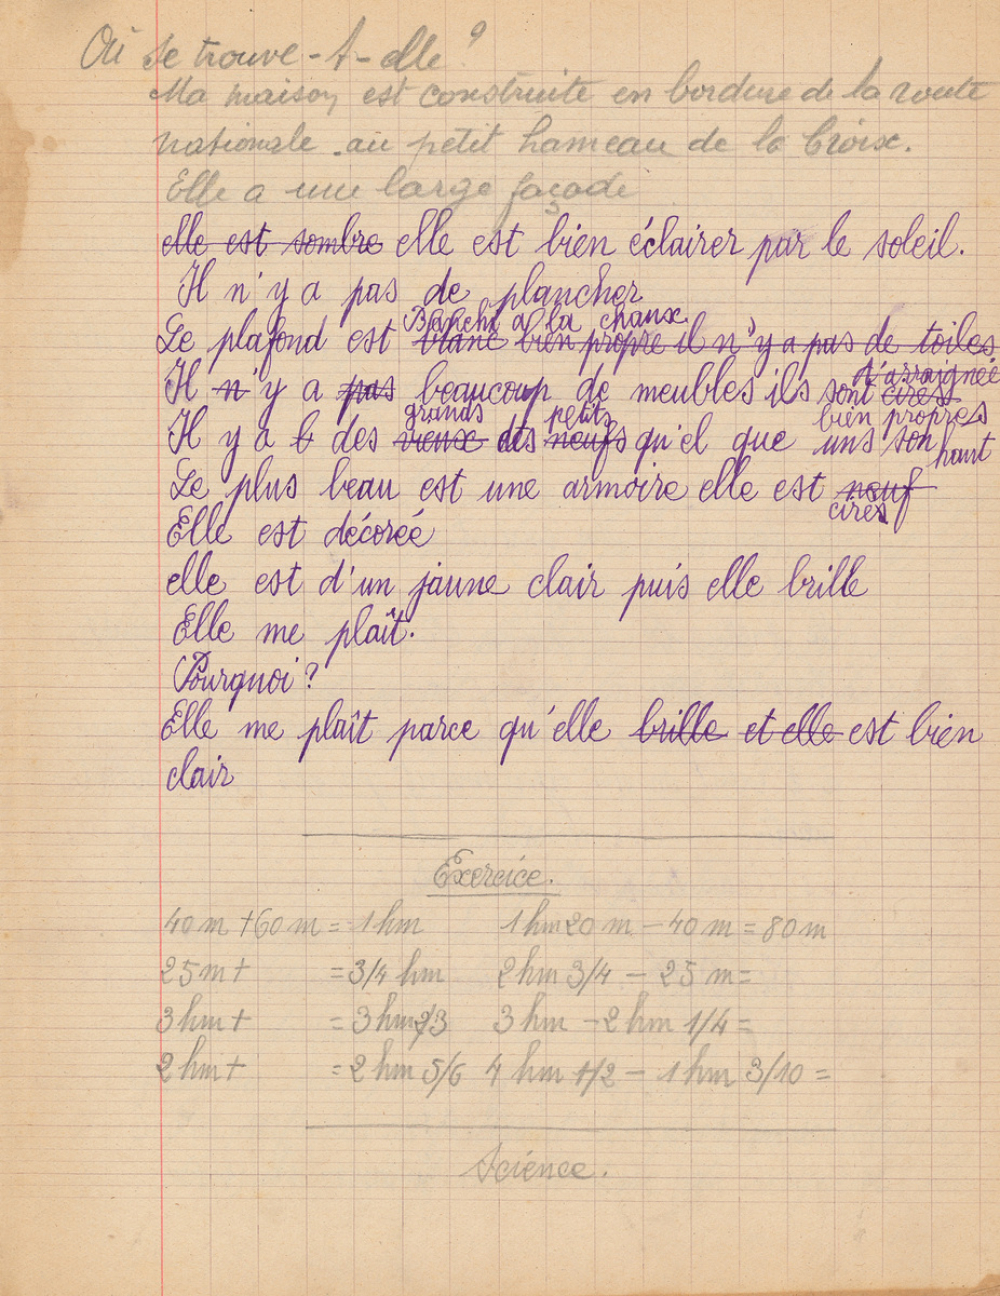 Où se trouve-t-elle ?
Ma maison est construite en bordure de la route
nationale au petit hameau de la Croix.
Elle a une large façade
elle est sombre elle est bien éclairer par le soleil.
Il n'y a pas de plancher
Blanchi à la chaux
Le plafond est blanc bien propre il n'y a pas de toiles
d'arraignée
Il n'y a pas beaucoup de meubles ils sont cirés
bien propres
grands petits
Il y a des vieux des neufs qu'el que uns son
haut
Le plus beau est une armoire elle est neuf
cirés
Elle est décorée
elle est d'un jaune clair puis elle brille
Elle me plaît.
Pourquoi ?
Elle me plaît parce qu'elle brille et elle est bien
clair
Exercice.
40 m + 60 m = 1 hm 1 hm 20 m - 40 m = 80 m
25 m + = 3/4 hm 2 hm 3/4 - 25 m =
3 hm + = 3 hm 2/3 3 hm - 2 hm 1/4 =
2 hm + = 2 hm 5/6 4 hm 1/2 - 1 hm 3/10 =
Science.